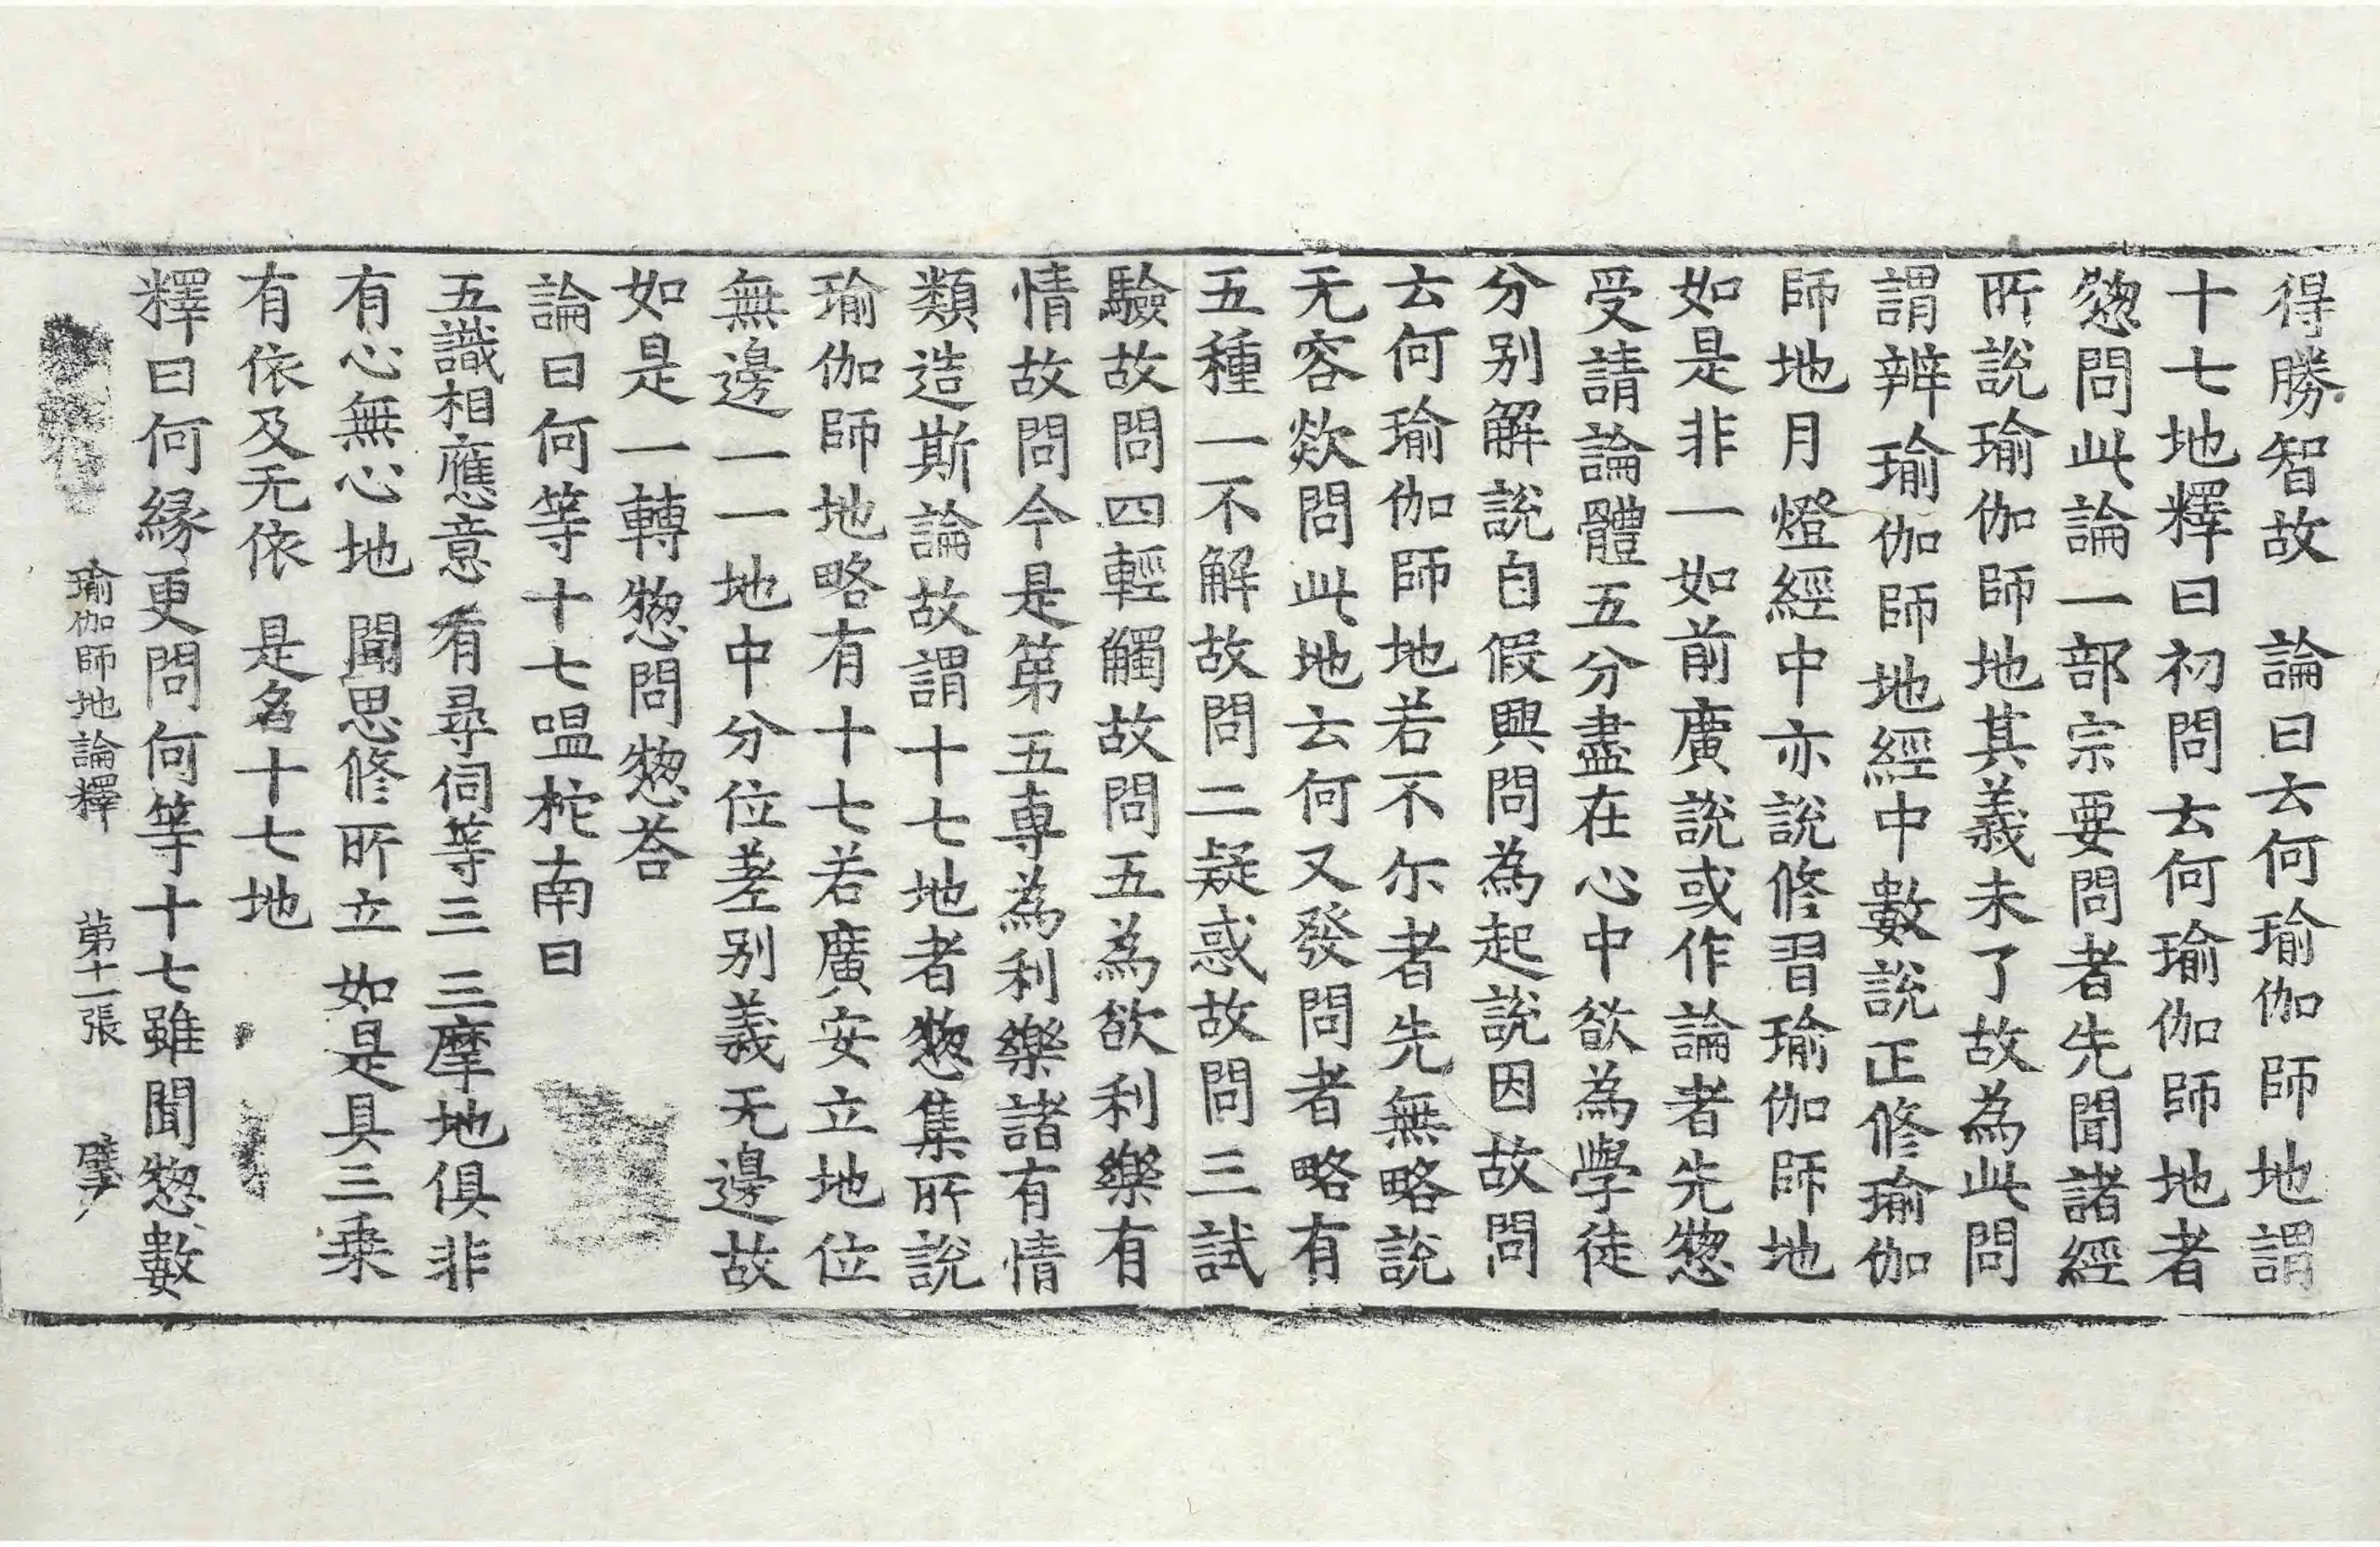 得勝智故 論曰云何瑜伽師地謂
十七地釋曰初問云何瑜伽師地者
惣問此論一部宗要問者先聞諸經
所說瑜伽師地其義未了故為此問
謂辨瑜伽師地經中數說正修瑜伽
師地月燈經中亦說修習瑜伽師地
如是非一如前廣說或作論者先惣
受請論體五分盡在心中欲為學徒
分别解說自假興問為起說因故問
云何瑜伽師地若不尒者先無略說
无容欻問此地云何又發問者略有
五種一不解故問二疑惑故問三試
驗故問四輕觸故問五為欲利樂有
情故問今是第五專為利樂諸有情
類造斯論故謂十七地者惣集所說
瑜伽師地略有十七若廣安立地位
無邊一一地中分位差别義无邊故
如是一轉惣問惣荅
論曰何等十七嗢柁南曰
五識相應意 有尋伺等三 三摩地俱非
有心無心地 聞思修所立 如是具三乗
有依及无依 是名十七地
釋曰何緣更問何等十七雖聞惣數
瑜伽師地論釋 第十一張